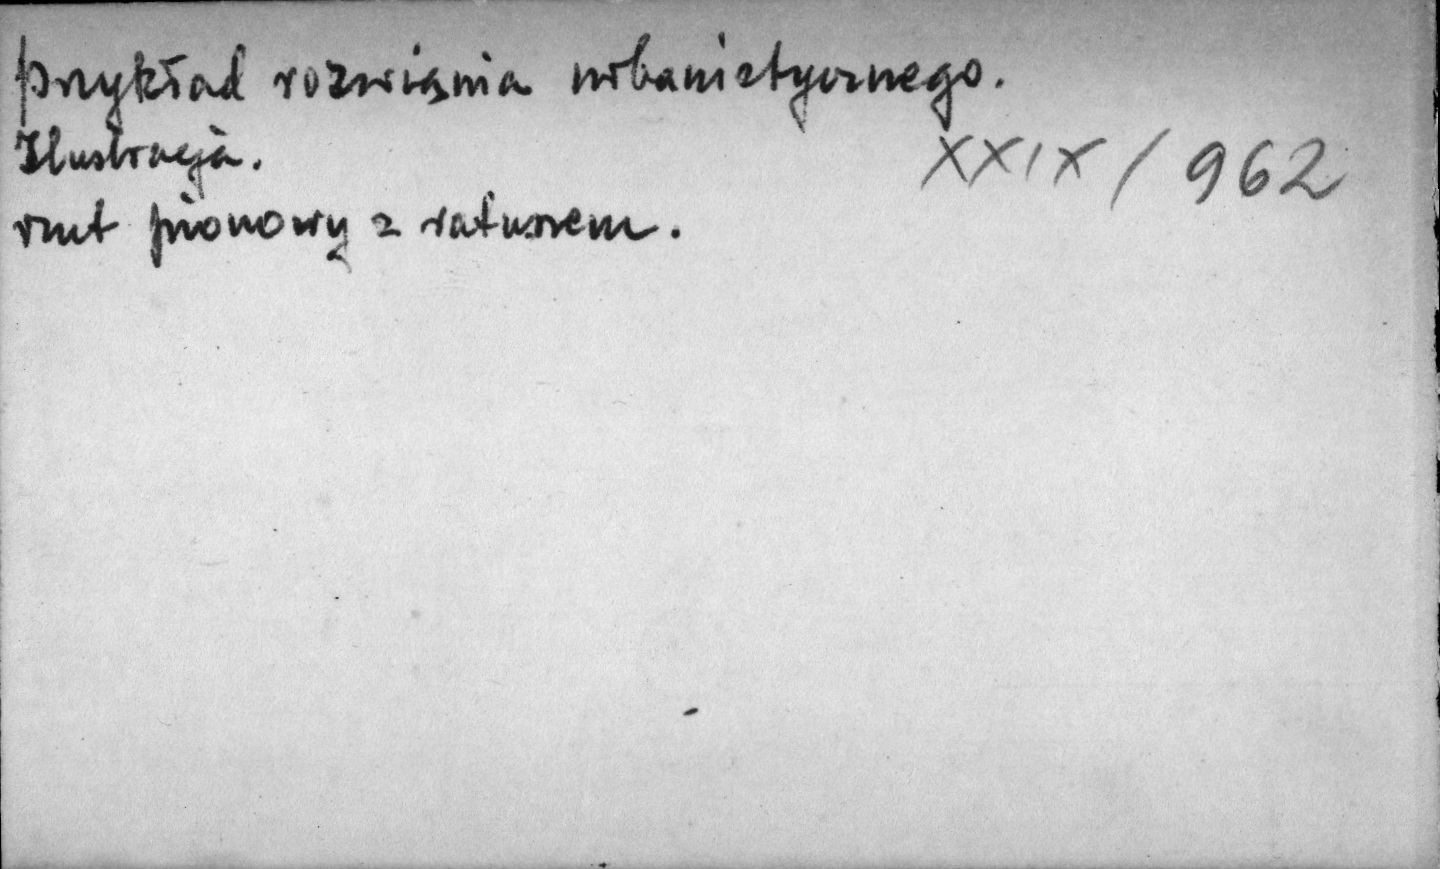 przykład rozwiąnia urbanistycznego.
Ilustracja.
XXIX / 962
rzut pionowy z ratuszem.